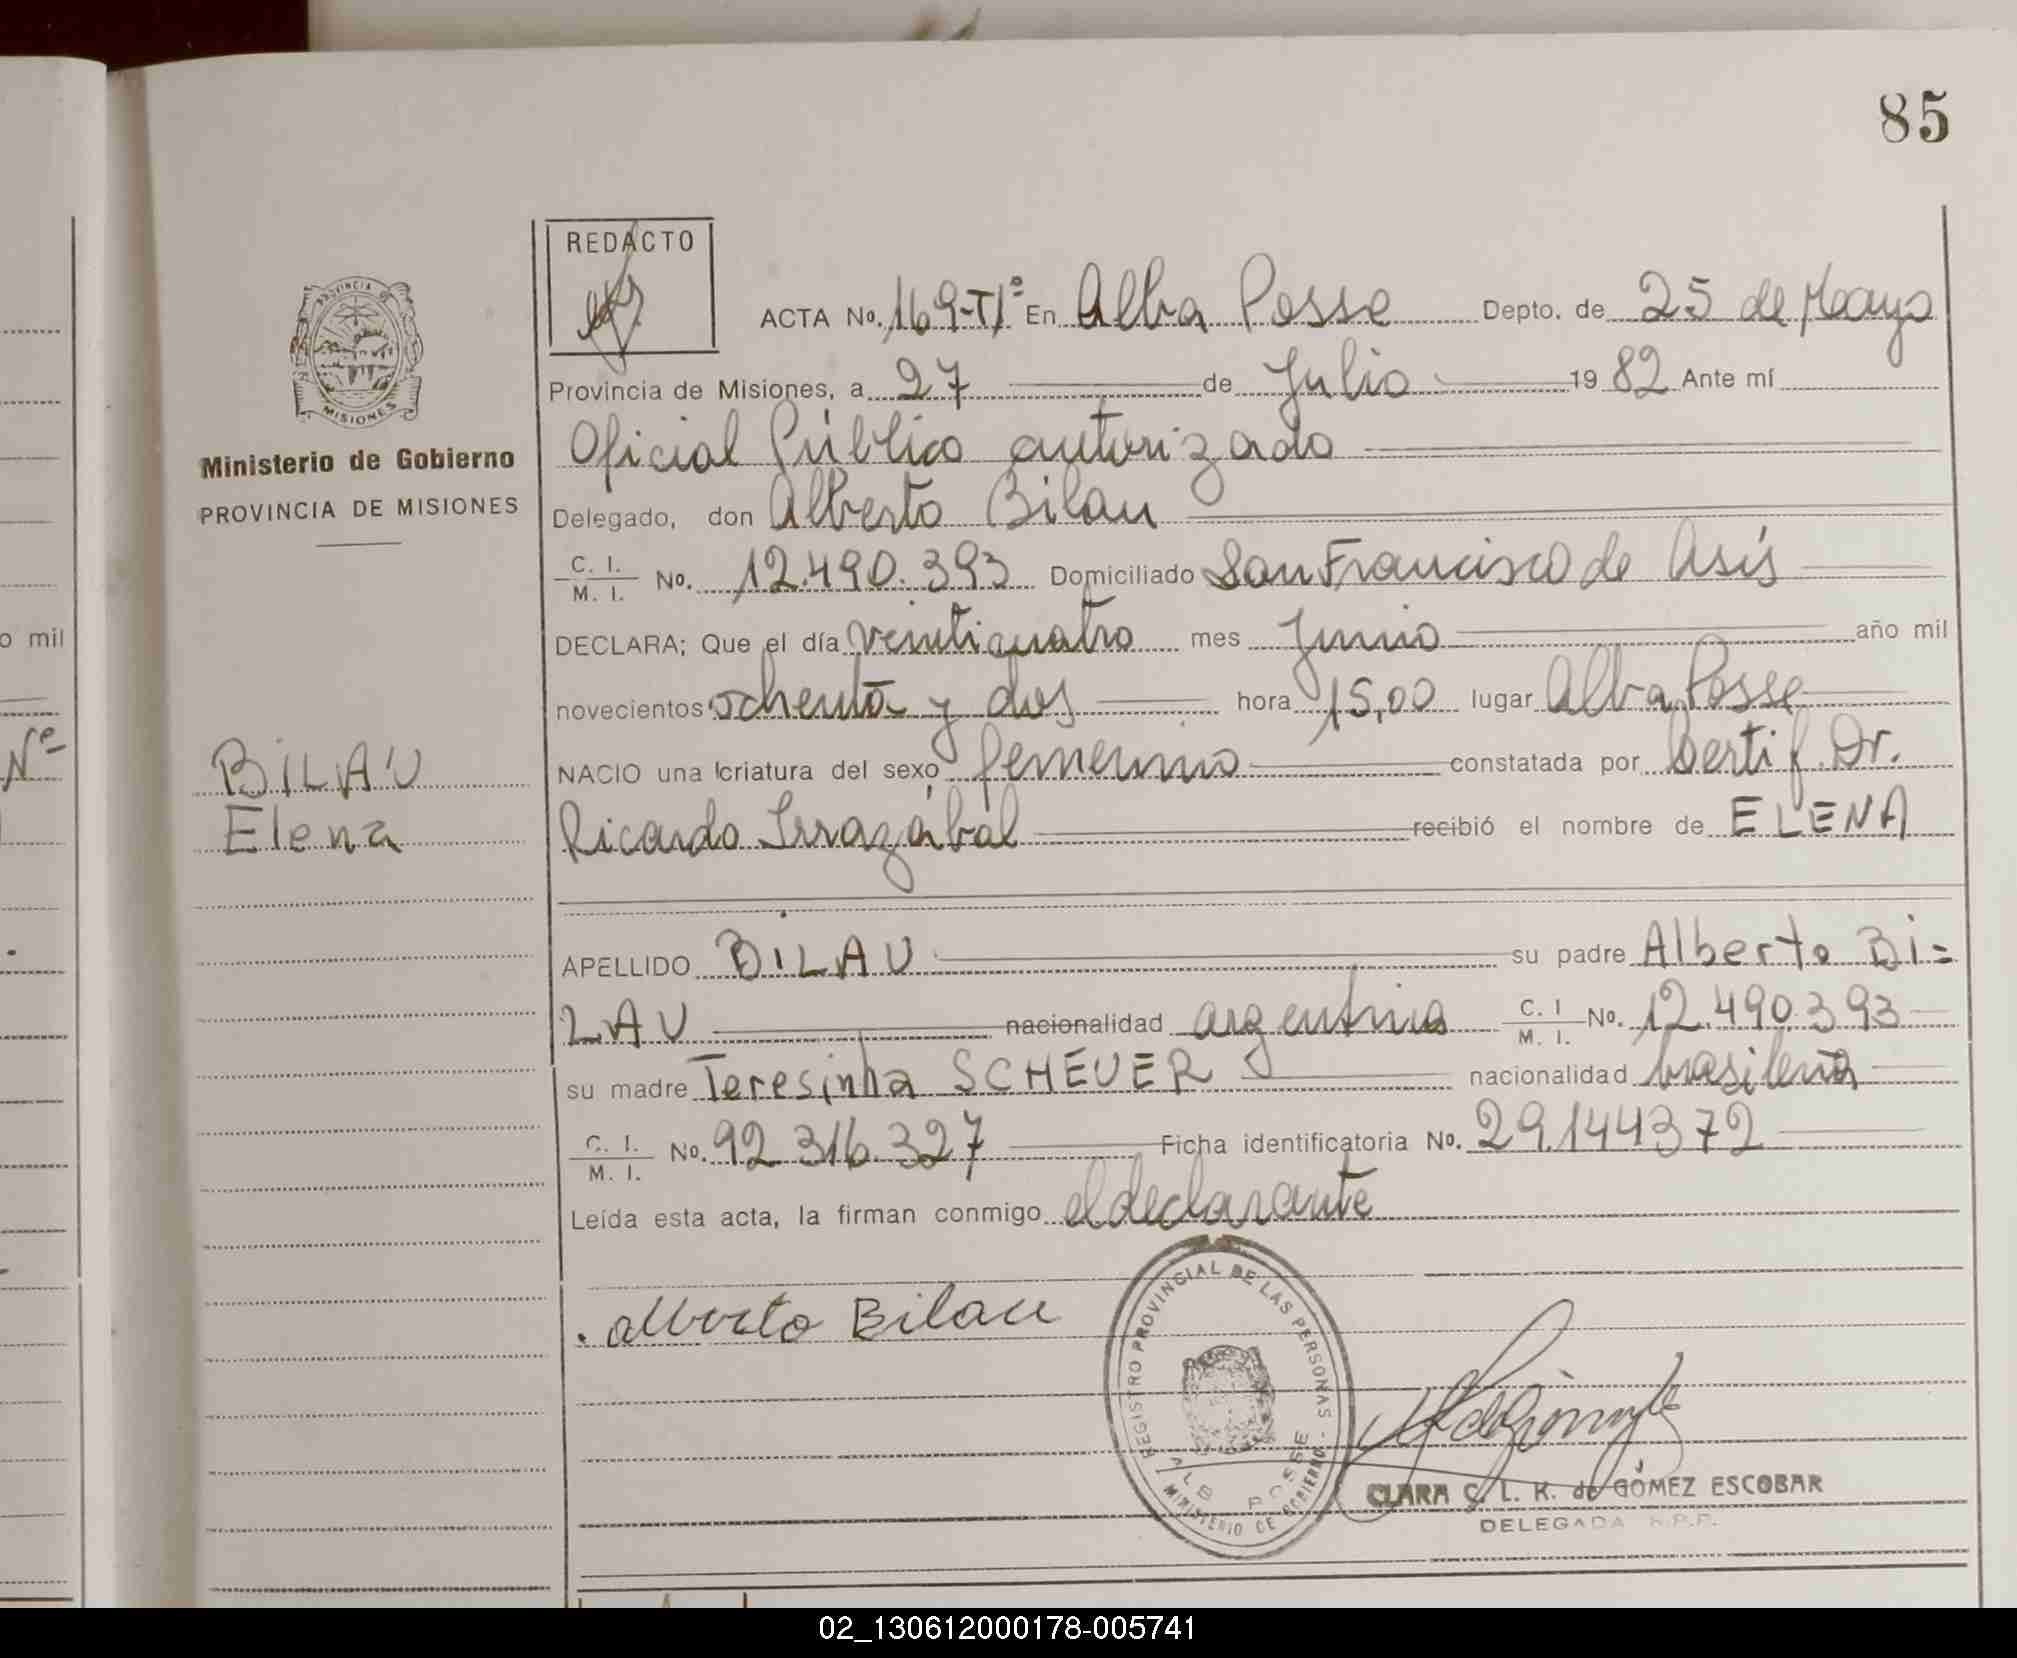 85
REDACTO
ACTA No. 169-Tº En Alba Posse Depto. de 25 de Mayo
Provincia de Misiones, a 27 de Julio 1982 Ante mí
Oficial Público autorizado
Delegado, don Alberto Bilau
C. I. / M. I. No. 12.490.393 Domiciliado San Francisco de Asís
DECLARA; Que el día veinticuatro mes Junio año mil
novecientos ochenta y dos hora 15,00 lugar Alba Posse
NACIO una criatura del sexo femenino constatada por Certif. Dr.
Ricardo Irrazábal recibió el nombre de ELENA
APELLIDO BILAU su padre Alberto Bi=
LAU nacionalidad argentina C. I / M. I. No. 12.490.393
su madre Teresinha SCHEUER nacionalidad brasileña
C. I. / M. I. No. 92.316.327 Ficha identificatoria No. 29.144372
Leída esta acta, la firman conmigo el declarante
alberto Bilau
REGISTRO PROVINCIAL DE LAS PERSONAS - MINISTERIO DE GOBIERNO
ALB POSSE
CLARA C. L. K. de GÓMEZ ESCOBAR
DELEGADA R.P.P.
PROVINCIA DE
MISIONES
Ministerio de Gobierno
PROVINCIA DE MISIONES
BILAU
Elena
o mil
Nº
02_130612000178-005741